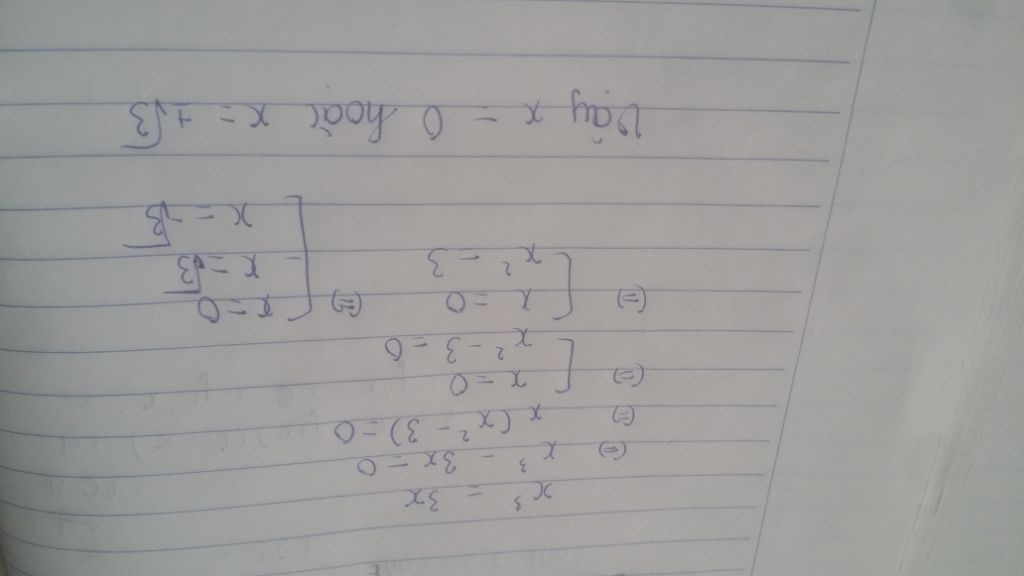 x³ = 3x
(=) x³ - 3x = 0
(=) x(x² - 3) = 0
(=) [ x = 0
x² - 3 = 0
(=) [ x = 0 (=) [ x = 0
x² = 3 x = √3
x = -√3
Vậy x = 0 hoặc x = ±√3